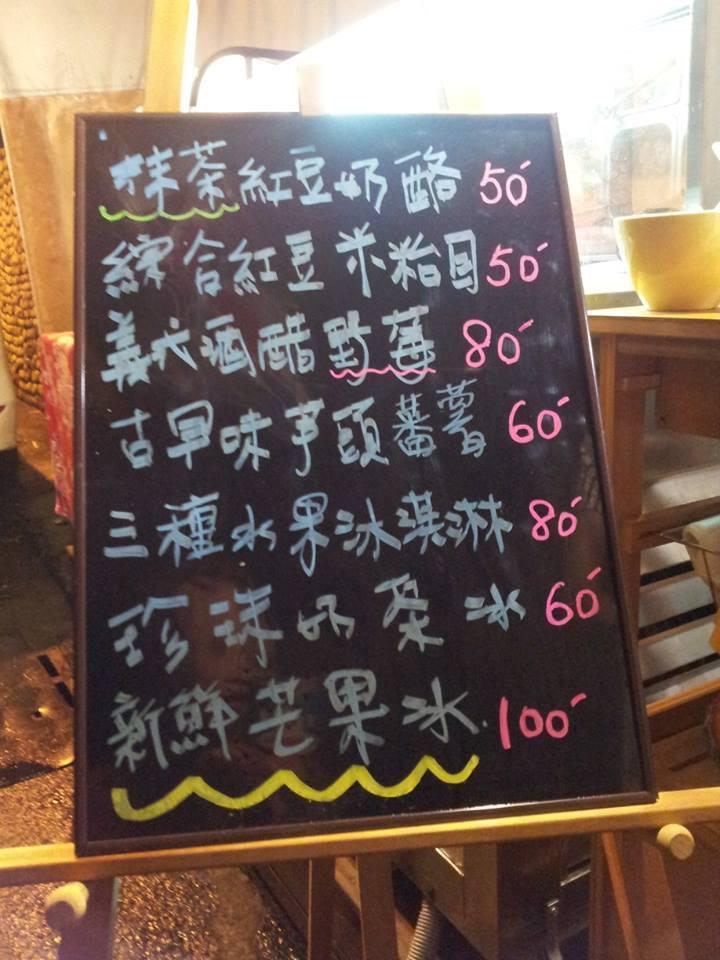 抹茶紅豆奶酪 50
綜合紅豆米粘目 50
義式酒醋野莓 80
古早味芋頭蕃薯 60
三種水果冰淇淋 80
珍珠奶茶冰 60
新鮮芒果冰 100